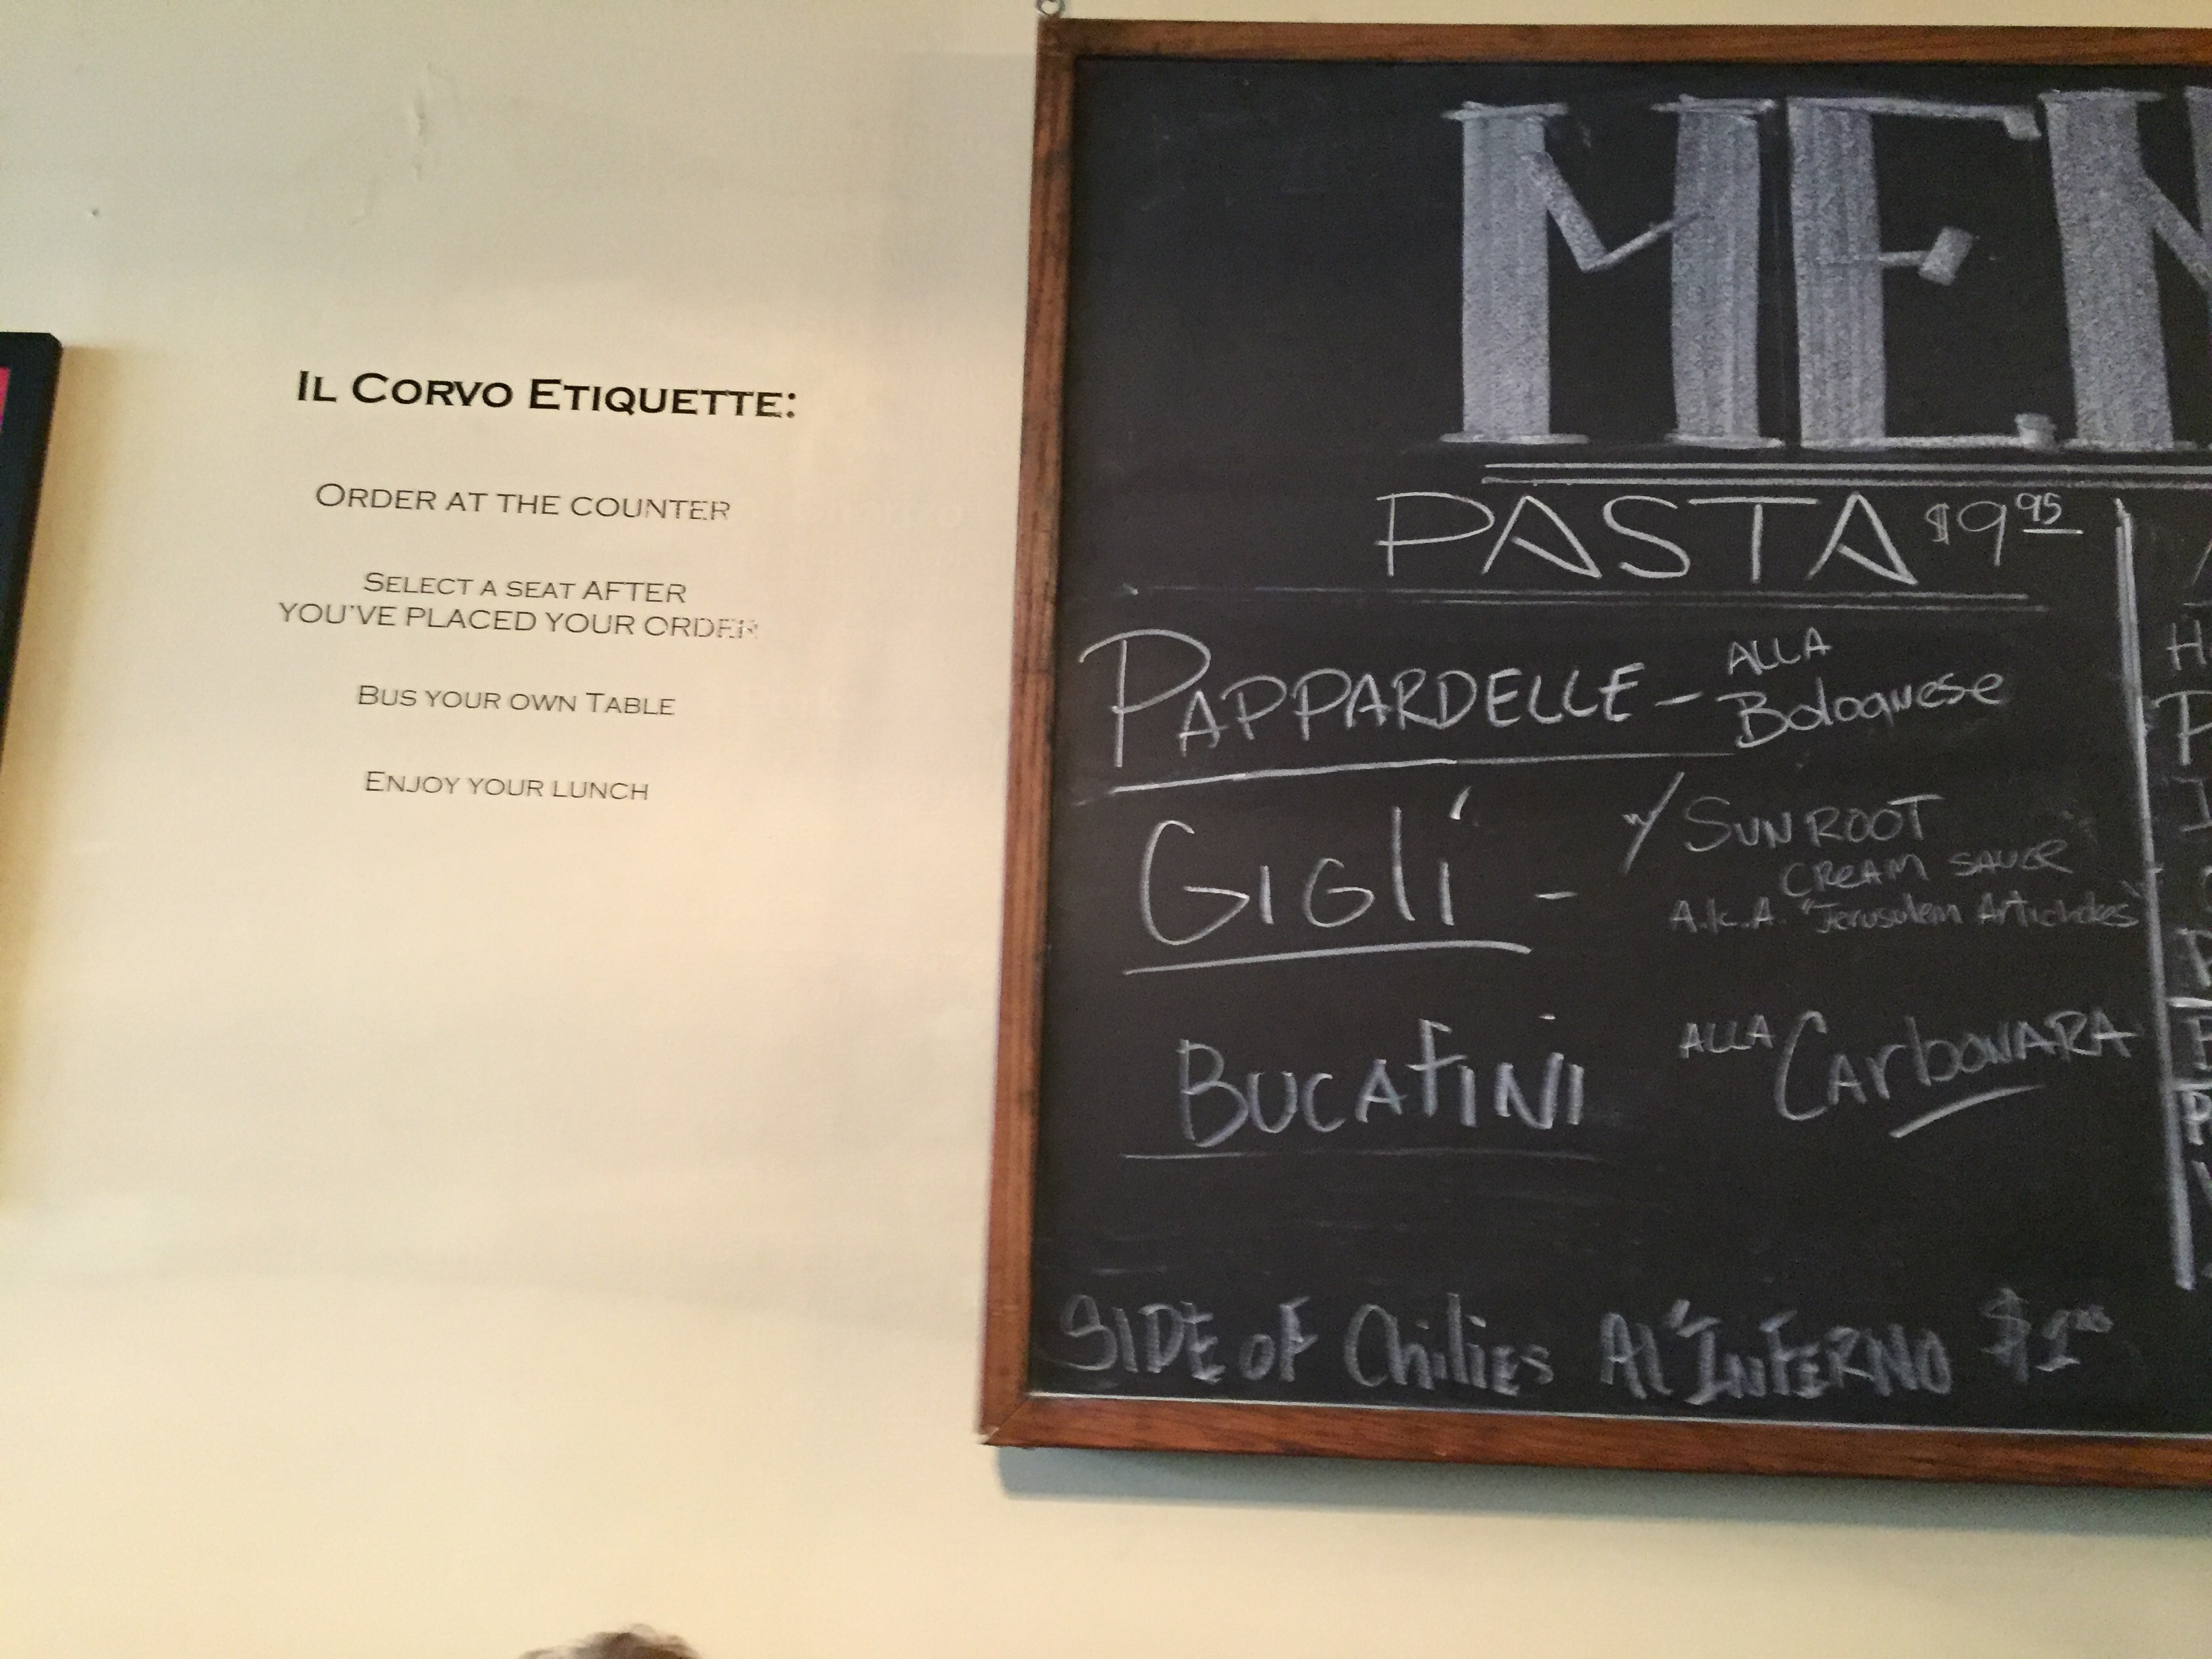 IL CORVO ETIQUETTE:
ORDER AT THE COUNTER
SELECT A SEAT AFTER
YOU'VE PLACED YOUR ORDER
BUS YOUR OWN TABLE
ENJOY YOUR LUNCH
MEN
PASTA $9.95
PAPPARDELLE - ALLA
Bolognese
GIGLI - w/ SUNROOT
CREAM SAUCE
A.K.A. "Jerusalem Artichokes"
BUCATINI ALLA CARbONARA
SIDE OF Chilies Al "INFERNO $1.00